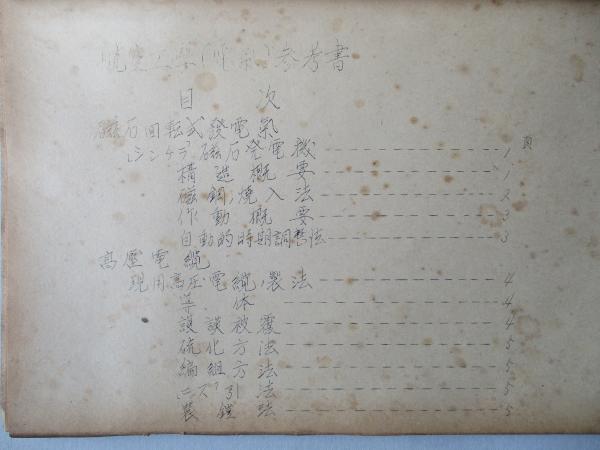 航空工學(電氣)参考書
目次
磁石回転式發電氣
シンチラ磁石発電機 1 頁
構造概要 1
磁鋼ノ焼入法 2
作動概要 3
自動的時期調整法 3
高壓電纜
現用高圧電纜ノ製法 4
導体 4
護謨被覆 4
硫化方法 5
編組方法 5
ニス引法 5
装鎧法 5